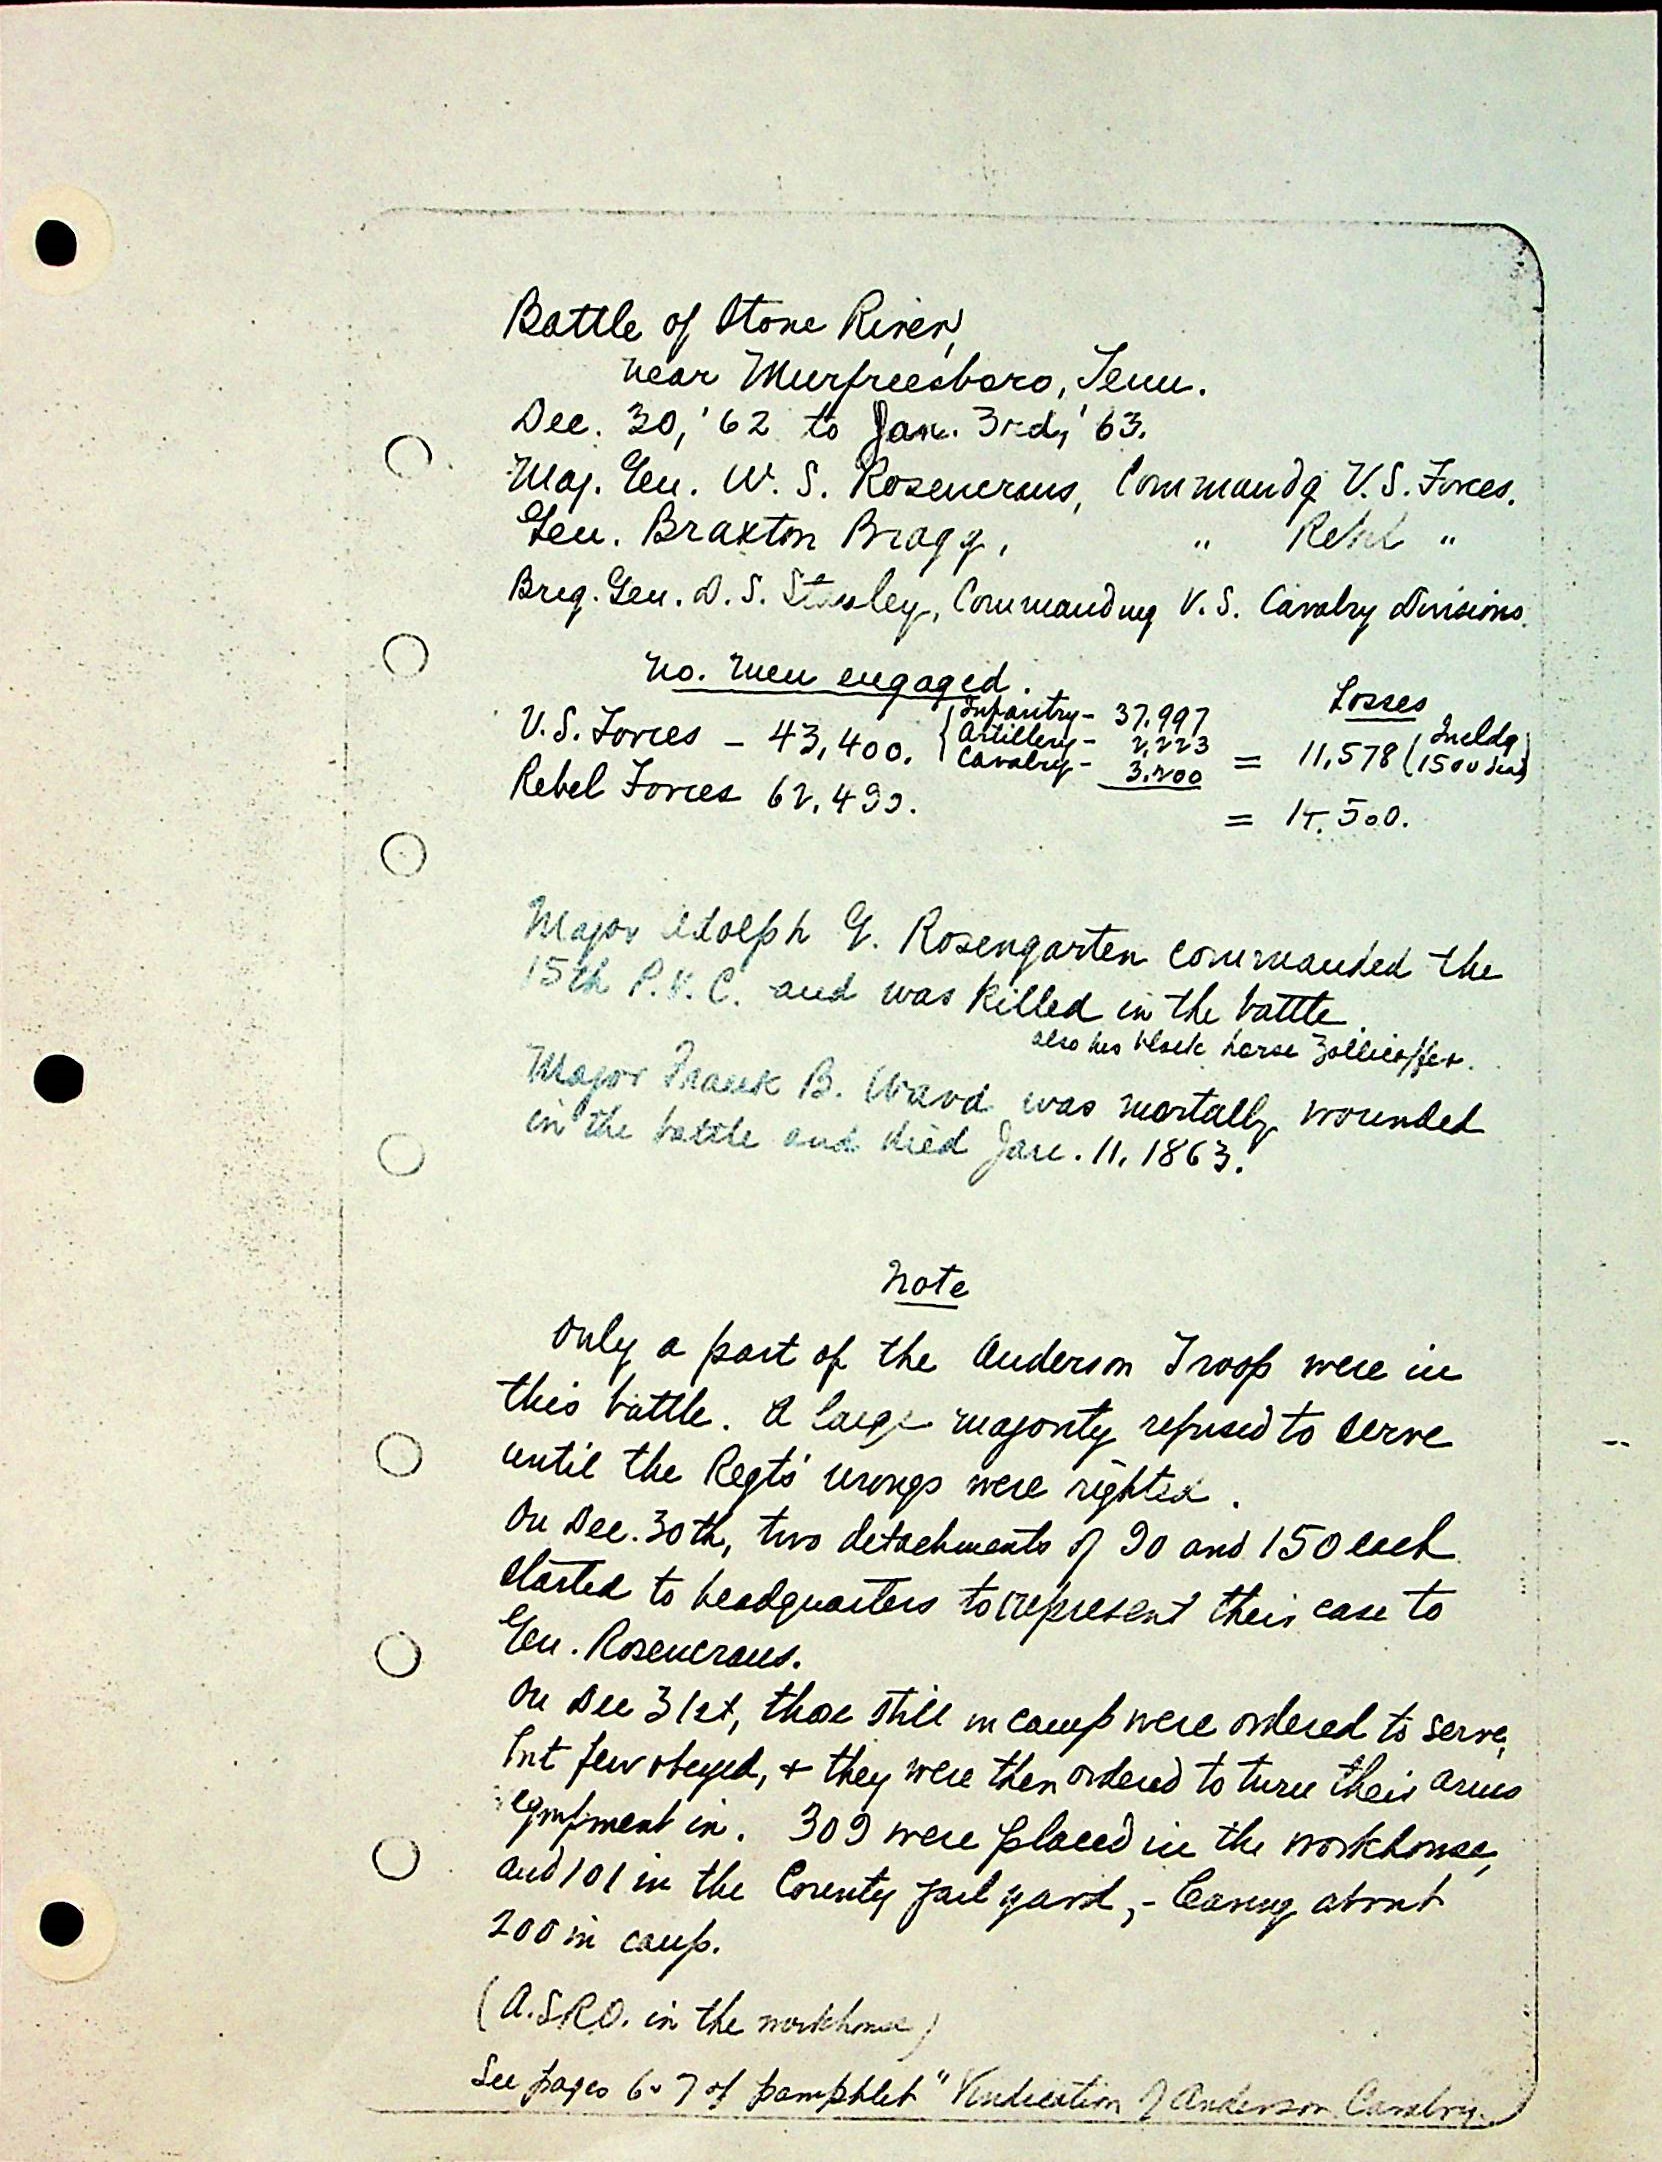 Battle of Stone River,
near Murfreesboro, Tenn.
Dec. 30, '62 to Jan. 3rd, '63.
Maj. Gen. W. S. Rosencrans, Commandg U.S. Forces.
Gen. Braxton Bragg, " Rebel "
Brig. Gen. D. S. Stanley, Commanding U.S. Cavalry Divisions.
No. Men engaged.
Losses
U.S. Forces - 43,400. { Infantry - 37,997
Artillery - 2,223
Cavalry - 3,200 = 11,578 (Incldg 1500 dead)
Rebel Forces 62,490. = 14,500.
Major Adolph G. Rosengarten commanded the
15th P.V.C. and was killed in the battle.
also his black horse Zollicoffer.
Major Frank B. Ward was mortally wounded
in the battle and died Jan. 11, 1863.
Note
Only a part of the Anderson Troop were in
this battle. A large majority refused to serve
until the Regts' wrongs were righted.
On Dec. 30th, two detachments of 90 and 150 each
started to headquarters to represent their case to
Gen. Rosencrans.
On Dec 31st, those still in camp were ordered to serve,
but few obeyed, & they were then ordered to turn their arms
equipment in. 309 were placed in the workhouse,
and 101 in the County jail yard, - leaving about
200 in camp.
(A.S.R.O. in the workhouse)
See pages 6 & 7 of pamphlet "Vindication of Anderson Cavalry.